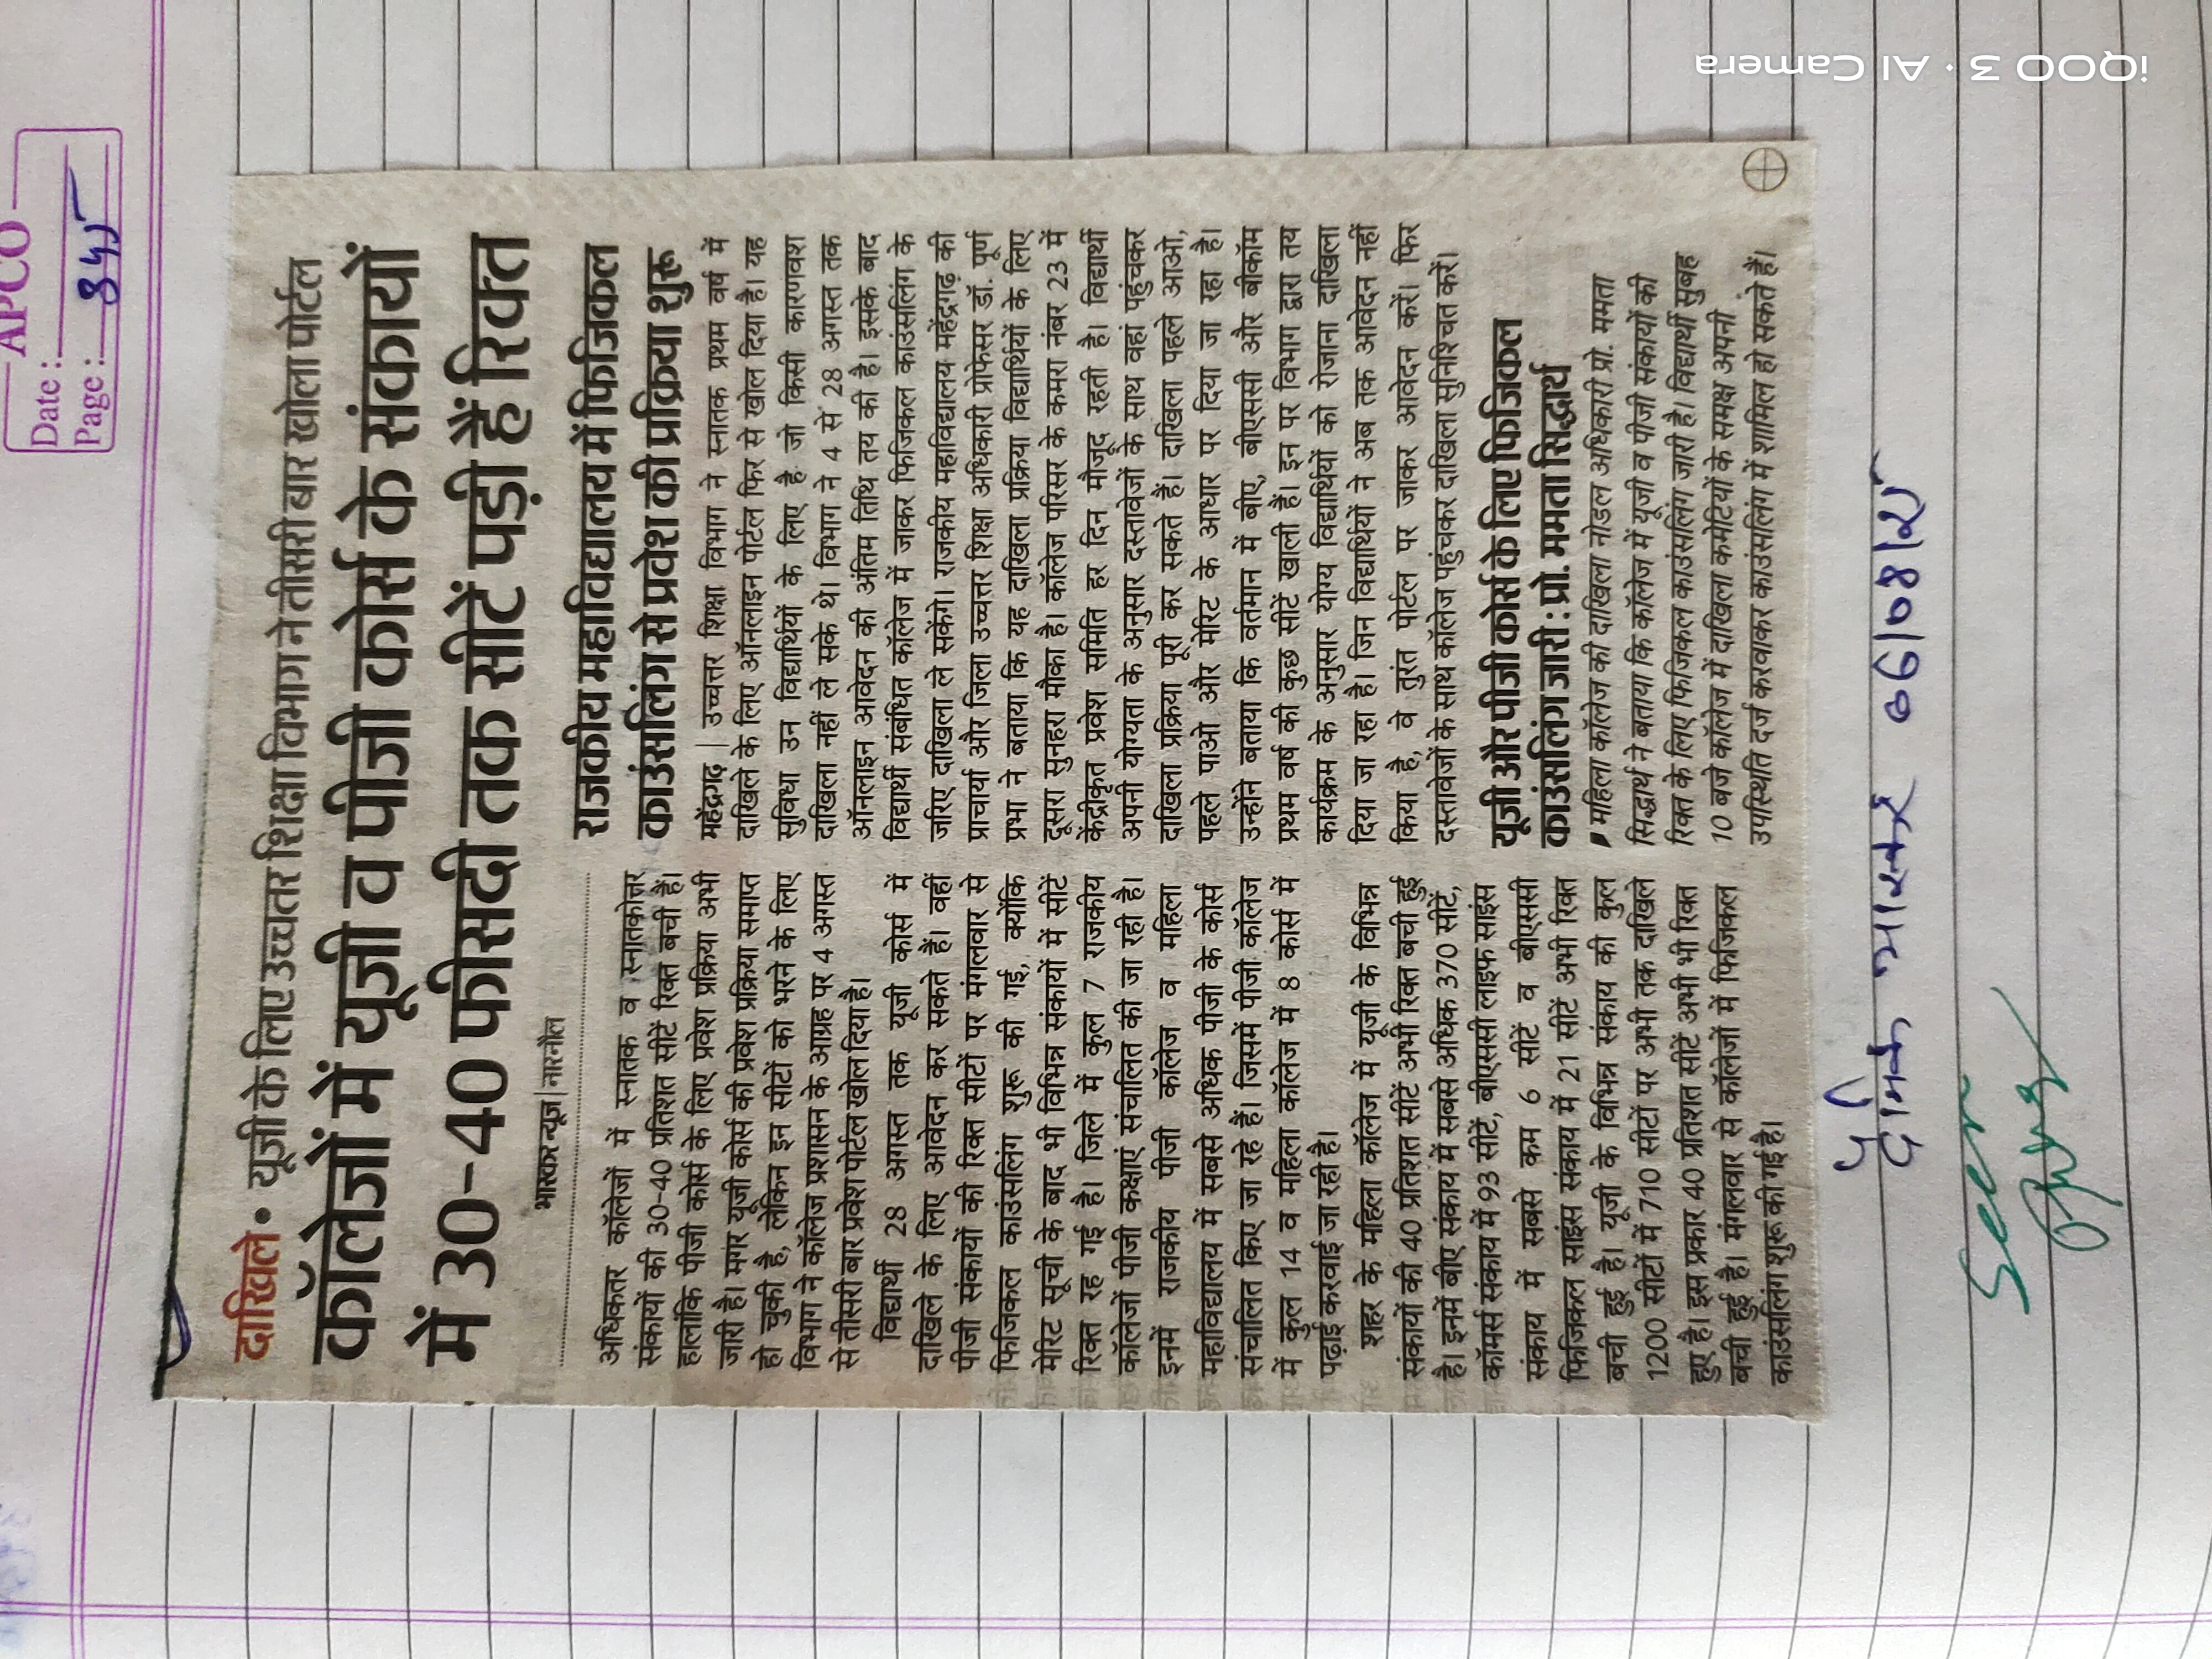 APCO
Date :
Page :
दाखिले • यूजी के लिए उच्चतर शिक्षा विभाग ने तीसरी बार खोला पोर्टल
कॉलेजों में यूजी व पीजी कोर्स के संकायों
में 30-40 फीसदी तक सीटें पड़ी हैं रिक्त
भास्कर न्यूज | नारनौल
अधिकतर कॉलेजों में स्नातक व स्नातकोत्तर
संकायों की 30-40 प्रतिशत सीटें रिक्त बची है।
हालांकि पीजी कोर्स के लिए प्रवेश प्रक्रिया अभी
जारी है। मगर यूजी कोर्स की प्रवेश प्रक्रिया समाप्त
हो चुकी है, लेकिन इन सीटों को भरने के लिए
विभाग ने कॉलेज प्रशासन के आग्रह पर 4 अगस्त
से तीसरी बार प्रवेश पोर्टल खोल दिया है।
विद्यार्थी 28 अगस्त तक यूजी कोर्स में
दाखिले के लिए आवेदन कर सकते हैं। वहीं
पीजी संकायों की रिक्त सीटों पर मंगलवार से
फिजिकल काउंसलिंग शुरू की गई, क्योंकि
मेरिट सूची के बाद भी विभिन्न संकायों में सीटें
रिक्त रह गई है। जिले में कुल 7 राजकीय
कॉलेजों पीजी कक्षाएं संचालित की जा रही है।
इनमें राजकीय पीजी कॉलेज व महिला
महाविद्यालय में सबसे अधिक पीजी के कोर्स
संचालित किए जा रहे हैं। जिसमें पीजी कॉलेज
में कुल 14 व महिला कॉलेज में 8 कोर्स में
पढ़ाई करवाई जा रही है।
शहर के महिला कॉलेज में यूजी के विभिन्न
संकायों की 40 प्रतिशत सीटें अभी रिक्त बची हुई
है। इनमें बीए संकाय में सबसे अधिक 370 सीटें,
कॉमर्स संकाय में 93 सीटें, बीएससी लाइफ साइंस
संकाय में सबसे कम 6 सीटें व बीएससी
फिजिकल साइंस संकाय में 21 सीटें अभी रिक्त
बची हुई है। यूजी के विभिन्न संकाय की कुल
1200 सीटों में 710 सीटों पर अभी तक दाखिले
हुए है। इस प्रकार 40 प्रतिशत सीटें अभी भी रिक्त
बची हुई है। मंगलवार से कॉलेजों में फिजिकल
काउंसलिंग शुरू की गई है।
राजकीय महाविद्यालय में फिजिकल
काउंसलिंग से प्रवेश की प्रक्रिया शुरू
महेंद्रगढ़ | उच्चत्तर शिक्षा विभाग ने स्नातक प्रथम वर्ष में
दाखिले के लिए ऑनलाइन पोर्टल फिर से खोल दिया है। यह
सुविधा उन विद्यार्थियों के लिए है जो किसी कारणवश
दाखिला नहीं ले सके थे। विभाग ने 4 से 28 अगस्त तक
ऑनलाइन आवेदन की अंतिम तिथि तय की है। इसके बाद
विद्यार्थी संबंधित कॉलेज में जाकर फिजिकल काउंसलिंग के
जरिए दाखिला ले सकेंगे। राजकीय महाविद्यालय महेंद्रगढ़ की
प्राचार्या और जिला उच्चत्तर शिक्षा अधिकारी प्रोफेसर डॉ. पूर्ण
प्रभा ने बताया कि यह दाखिला प्रक्रिया विद्यार्थियों के लिए
दूसरा सुनहरा मौका है। कॉलेज परिसर के कमरा नंबर 23 में
केंद्रीकृत प्रवेश समिति हर दिन मौजूद रहती है। विद्यार्थी
अपनी योग्यता के अनुसार दस्तावेजों के साथ वहां पहुंचकर
दाखिला प्रक्रिया पूरी कर सकते हैं। दाखिला पहले आओ,
पहले पाओ और मेरिट के आधार पर दिया जा रहा है।
उन्होंने बताया कि वर्तमान में बीए, बीएससी और बीकॉम
प्रथम वर्ष की कुछ सीटें खाली हैं। इन पर विभाग द्वारा तय
कार्यक्रम के अनुसार योग्य विद्यार्थियों को रोजाना दाखिला
दिया जा रहा है। जिन विद्यार्थियों ने अब तक आवेदन नहीं
किया है, वे तुरंत पोर्टल पर जाकर आवेदन करें। फिर
दस्तावेजों के साथ कॉलेज पहुंचकर दाखिला सुनिश्चित करें।
यूजी और पीजी कोर्स के लिए फिजिकल
काउंसलिंग जारी : प्रो. ममता सिद्धार्थ
महिला कॉलेज की दाखिला नोडल अधिकारी प्रो. ममता
सिद्धार्थ ने बताया कि कॉलेज में यूजी व पीजी संकायों की
रिक्त के लिए फिजिकल काउंसलिंग जारी है। विद्यार्थी सुबह
10 बजे कॉलेज में दाखिला कमेटियों के समक्ष अपनी
उपस्थिति दर्ज करवाकर काउंसलिंग में शामिल हो सकते हैं।
दैनिक भास्कर 06/08/25
Seen
iQOO 3 · AI Camera